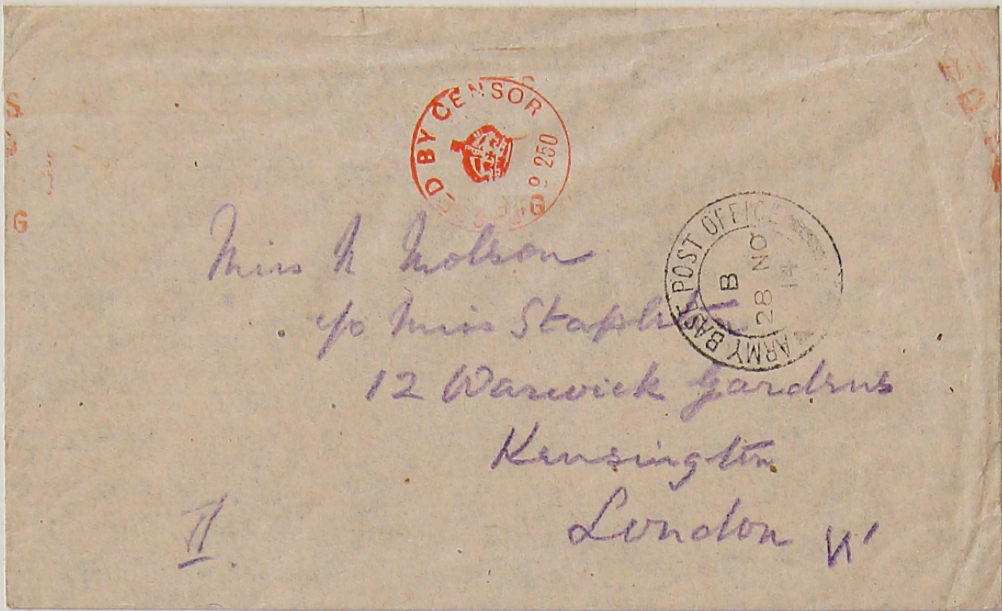 ED BY CENSOR
9 250
ARMY BASE POST OFFICE
B
28 NO
14
Miss N Molson
c/o Miss
12 Warwick Gardens
Kensington
London W
II
S
G